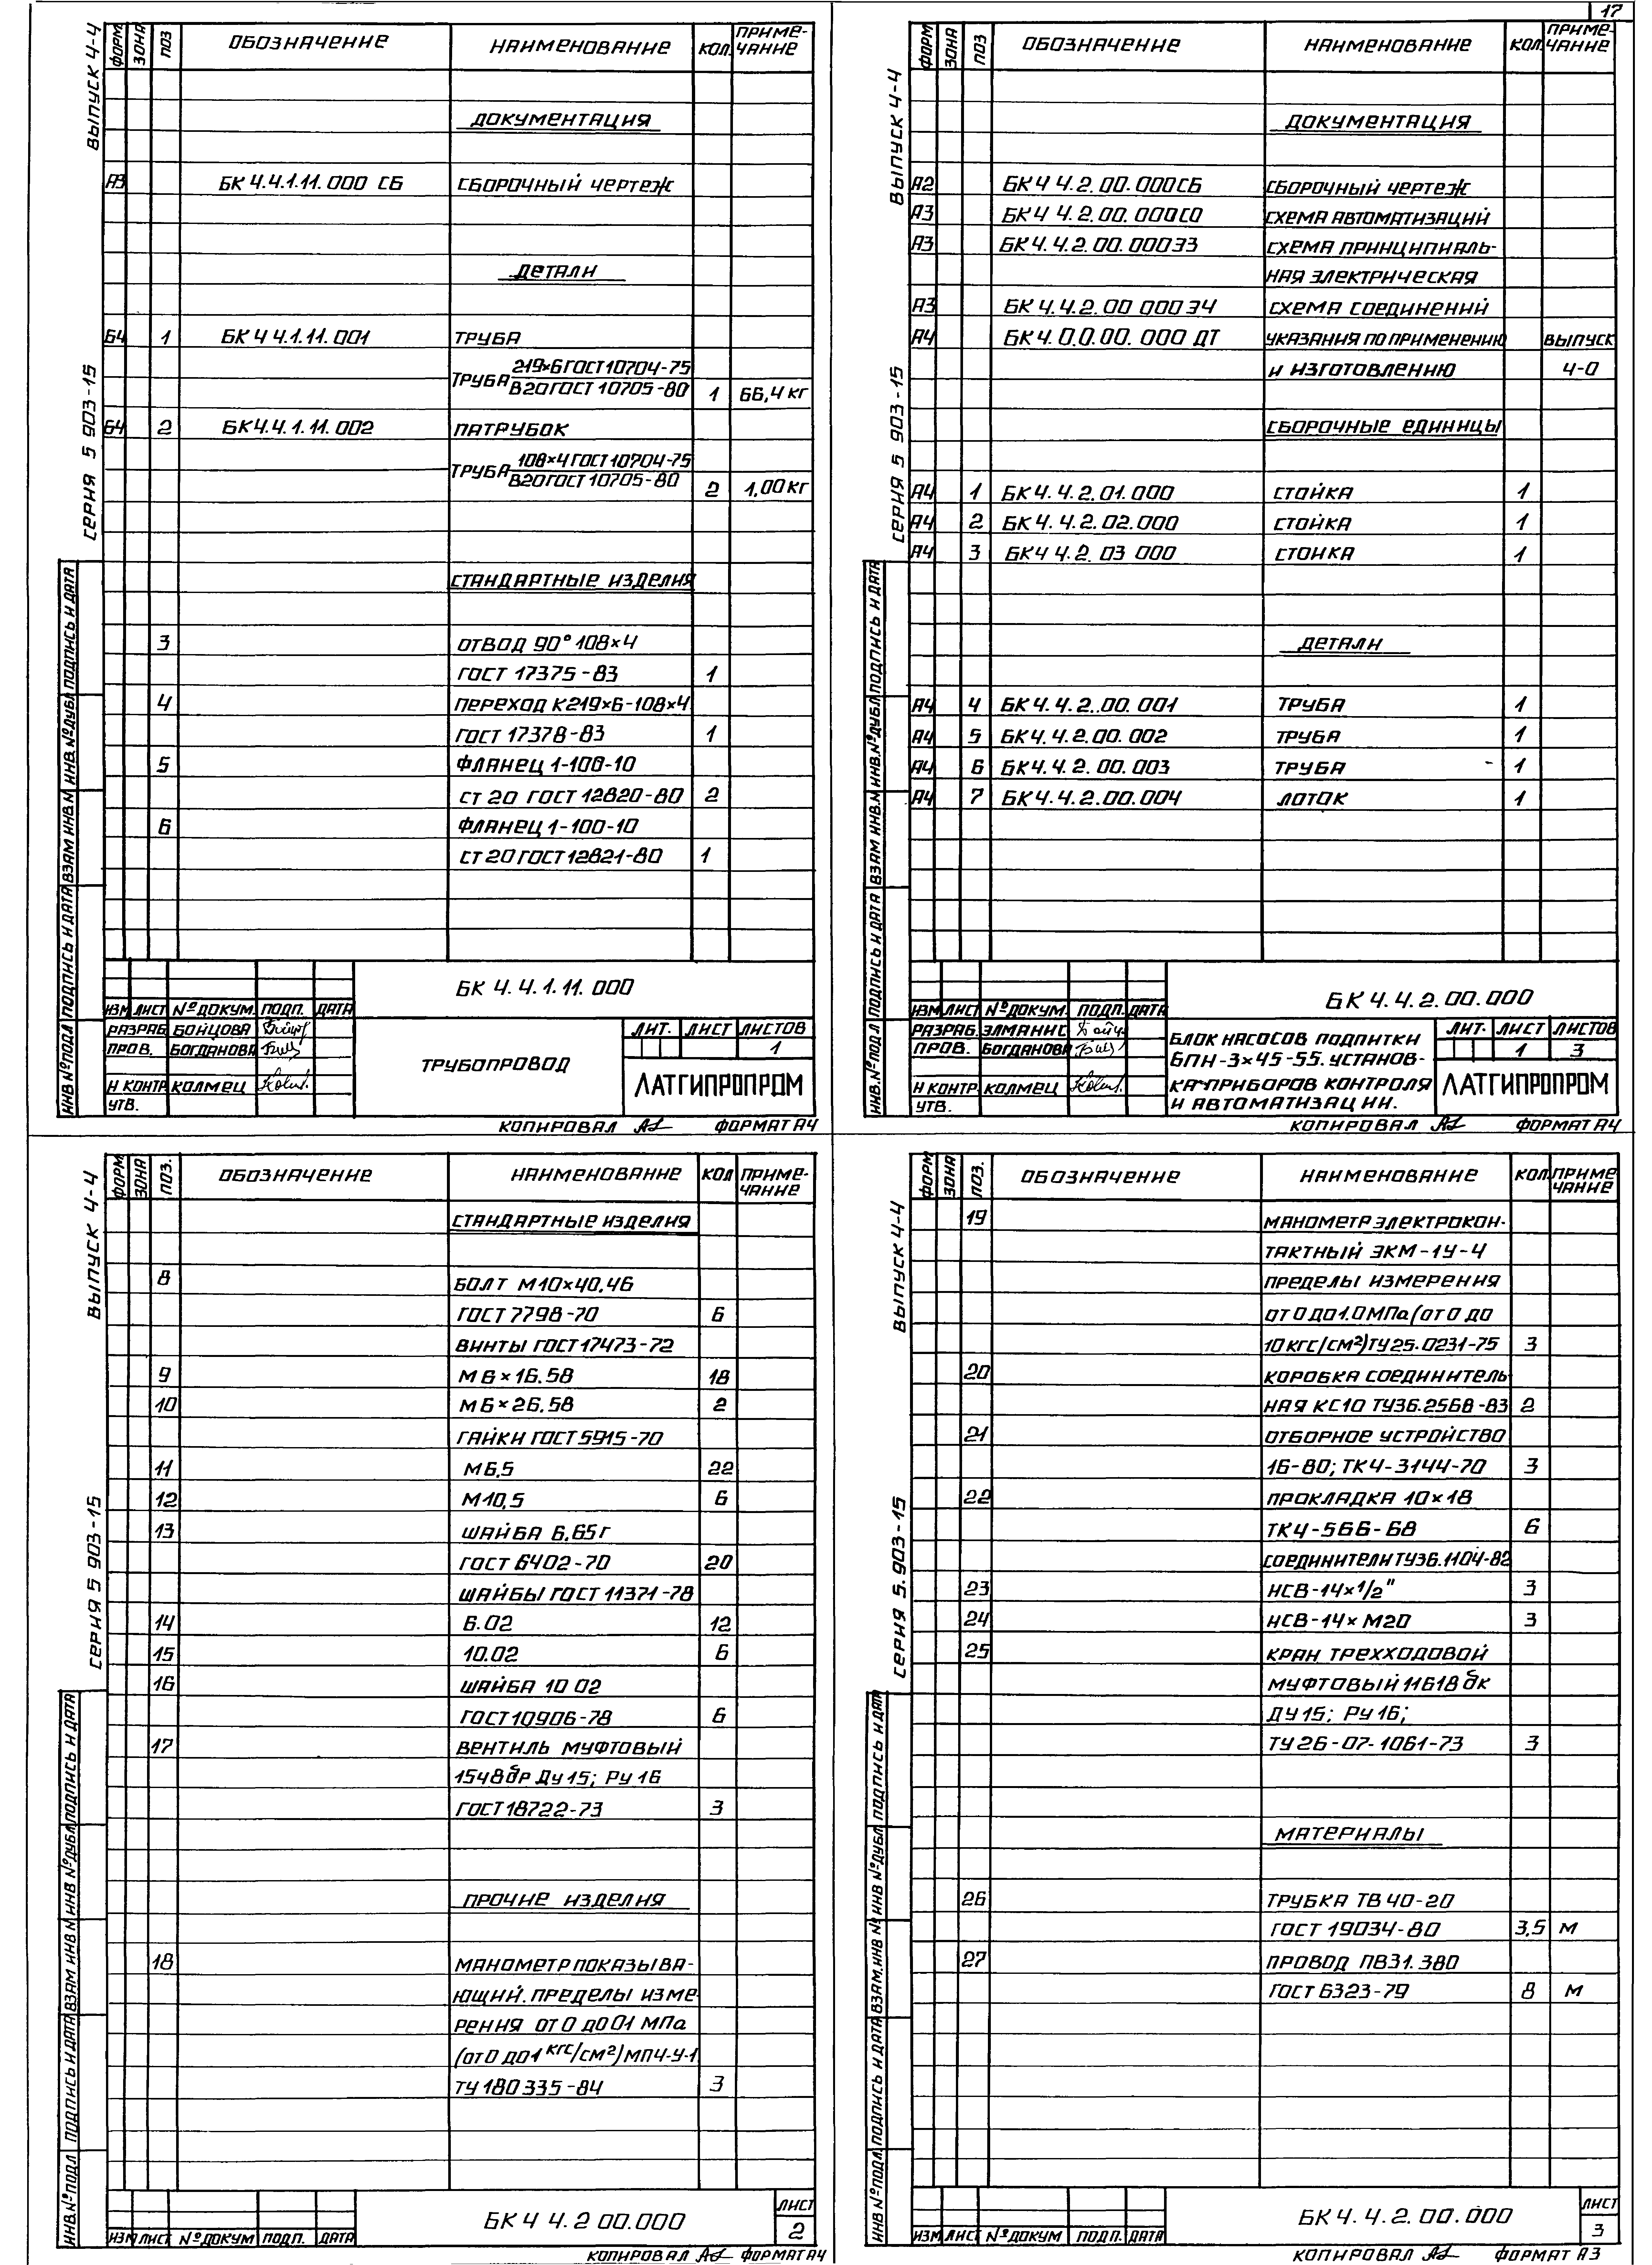 17
ВЫПУСК 4-4
СЕРИЯ 5 903-15
ФОРМ ЗОНА ПОЗ ОБОЗНАЧЕНИЕ НАИМЕНОВАНИЕ КОЛ. ПРИМЕ-
ЧАНИЕ
ДОКУМЕНТАЦИЯ
А3 БК 4.4.1.11.000 СБ СБОРОЧНЫЙ ЧЕРТЕЖ
ДЕТАЛИ
Б4 1 БК 4 4.1.11.001 ТРУБА
ТРУБА 219×6 ГОСТ 10704-75
В20 ГОСТ 10705-80 1 66,4 кг
Б4 2 БК 4.4.1.11.002 ПАТРУБОК
ТРУБА 108×4 ГОСТ 10704-75
В20 ГОСТ 10705-80 2 1,00 кг
СТАНДАРТНЫЕ ИЗДЕЛИЯ
3 ОТВОД 90° 108×4
ГОСТ 17375-83 1
4 ПЕРЕХОД К219×6-108×4
ГОСТ 17378-83 1
5 ФЛАНЕЦ 1-100-10
СТ 20 ГОСТ 12820-80 2
6 ФЛАНЕЦ 1-100-10
СТ 20 ГОСТ 12821-80 1
ИНВ №ПОДЛ ПОДПИСЬ И ДАТА ВЗАМ ИНВ.№ ИНВ.№ДУБЛ ПОДПИСЬ И ДАТА
БК 4.4.1.11.000
ИЗМ ЛИСТ №ДОКУМ. ПОДП. ДАТА
РАЗРАБ. БОЙЦОВА
ПРОВ. БОГДАНОВА
Н КОНТР КОЛМЕЦ
УТВ.
ТРУБОПРОВОД
ЛИТ. ЛИСТ ЛИСТОВ
1
ЛАТГИПРОПРОМ
КОПИРОВАЛ ФОРМАТ А4
ВЫПУСК 4-4
СЕРИЯ 5 903-15
ФОРМ ЗОНА ПОЗ ОБОЗНАЧЕНИЕ НАИМЕНОВАНИЕ КОЛ. ПРИМЕ-
ЧАНИЕ
ДОКУМЕНТАЦИЯ
А2 БК 4 4.2.00.000СБ СБОРОЧНЫЙ ЧЕРТЕЖ
А3 БК 4 4.2.00.000С0 СХЕМА АВТОМАТИЗАЦИЙ
А3 БК 4.4.2.00.000Э3 СХЕМА ПРИНЦИПИАЛЬ-
НАЯ ЭЛЕКТРИЧЕСКАЯ
А3 БК 4.4.2.00 000 Э4 СХЕМА СОЕДИНЕНИЙ
А4 БК 4.0.0.00.000 ДТ УКАЗАНИЯ ПО ПРИМЕНЕНИЮ ВЫПУСК
И ИЗГОТОВЛЕНИЮ 4-0
СБОРОЧНЫЕ ЕДИНИЦЫ
А4 1 БК 4.4.2.01.000 СТОЙКА 1
А4 2 БК 4.4.2.02.000 СТОЙКА 1
А4 3 БК 4 4.2.03 000 СТОЙКА 1
ДЕТАЛИ
А4 4 БК 4.4.2.00.001 ТРУБА 1
А4 5 БК 4.4.2.00.002 ТРУБА 1
А4 6 БК 4.4.2.00.003 ТРУБА 1
А4 7 БК 4.4.2.00.004 ЛОТОК 1
ИНВ.№ПОДЛ ПОДПИСЬ И ДАТА ВЗАМ ИНВ.№ ИНВ.№ДУБЛ ПОДПИСЬ И ДАТА
БК 4.4.2.00.000
ИЗМ ЛИСТ №ДОКУМ. ПОДП. ДАТА
РАЗРАБ. ЭЛМАНИС
ПРОВ. БОГДАНОВА
Н КОНТР КОЛМЕЦ
УТВ.
БЛОК НАСОСОВ ПОДПИТКИ
БПН-3×45-55. УСТАНОВ-
КА ПРИБОРОВ КОНТРОЛЯ
И АВТОМАТИЗАЦИИ.
ЛИТ. ЛИСТ ЛИСТОВ
1 3
ЛАТГИПРОПРОМ
КОПИРОВАЛ ФОРМАТ А4
ВЫПУСК 4-4
СЕРИЯ 5 903-15
ФОРМ ЗОНА ПОЗ. ОБОЗНАЧЕНИЕ НАИМЕНОВАНИЕ КОЛ ПРИМЕ-
ЧАНИЕ
СТАНДАРТНЫЕ ИЗДЕЛИЯ
8 БОЛТ М10×40.46
ГОСТ 7798-70 6
ВИНТЫ ГОСТ 17473-72
9 М6×16.58 18
10 М6×26.58 2
ГАЙКИ ГОСТ 5915-70
11 М6,5 22
12 М10,5 6
13 ШАЙБА 6.65г
ГОСТ 6402-70 20
ШАЙБЫ ГОСТ 11371-78
14 6.02 12
15 10.02 6
16 ШАЙБА 10 02
ГОСТ 10906-78 6
17 ВЕНТИЛЬ МУФТОВЫЙ
15Ч8бР Ду 15; Ру 16
ГОСТ 18722-73 3
ПРОЧИЕ ИЗДЕЛИЯ
18 МАНОМЕТР ПОКАЗЫВА-
ЮЩИЙ. ПРЕДЕЛЫ ИЗМЕ
РЕНИЯ ОТ 0 ДО 01 МПа
(ОТ 0 ДО 1 кгс/см²) МП4-У-1
ТУ 180 335-84 3
ИНВ.№ПОДЛ ПОДПИСЬ И ДАТА ВЗАМ ИНВ № ИНВ №ДУБЛ ПОДПИСЬ И ДАТА
ИЗМ ЛИСТ №ДОКУМ ПОДП. ДАТА
БК 4 4.2 00.000
ЛИСТ
2
КОПИРОВАЛ ФОРМАТ А4
ВЫПУСК 4-4
СЕРИЯ 5.903-15
ФОРМ ЗОНА ПОЗ. ОБОЗНАЧЕНИЕ НАИМЕНОВАНИЕ КОЛ. ПРИМЕ
ЧАНИЕ
19 МАНОМЕТР ЭЛЕКТРОКОН-
ТАКТНЫЙ ЭКМ-1У-4
ПРЕДЕЛЫ ИЗМЕРЕНИЯ
ОТ 0 ДО 1.0 МПа (ОТ 0 ДО
10 кгс/см²) ТУ 25.0231-75 3
20 КОРОБКА СОЕДИНИТЕЛЬ
НАЯ КС10 ТУ36.2568-83 2
21 ОТБОРНОЕ УСТРОЙСТВО
16-80; ТК4-3144-70 3
22 ПРОКЛАДКА 10×18
ТК4-566-68 6
СОЕДИНИТЕЛИ ТУ36.1104-82
23 НСВ-14×1/2" 3
24 НСВ-14×М20 3
25 КРАН ТРЕХХОДОВОЙ
МУФТОВЫЙ 11Б18бк
ДУ 15; РУ 16;
ТУ 26-07-1061-73 3
МАТЕРИАЛЫ
26 ТРУБКА ТВ 40-20
ГОСТ 19034-80 3,5 м
27 ПРОВОД ПВ31.380
ГОСТ 6323-79 8 м
ИНВ №ПОДЛ. ПОДПИСЬ И ДАТА ВЗАМ.ИНВ № ИНВ №ДУБЛ ПОДПИСЬ И ДАТА
ИЗМ ЛИСТ №ДОКУМ ПОДП. ДАТА
БК 4.4.2.00.000
ЛИСТ
3
КОПИРОВАЛ ФОРМАТ А3